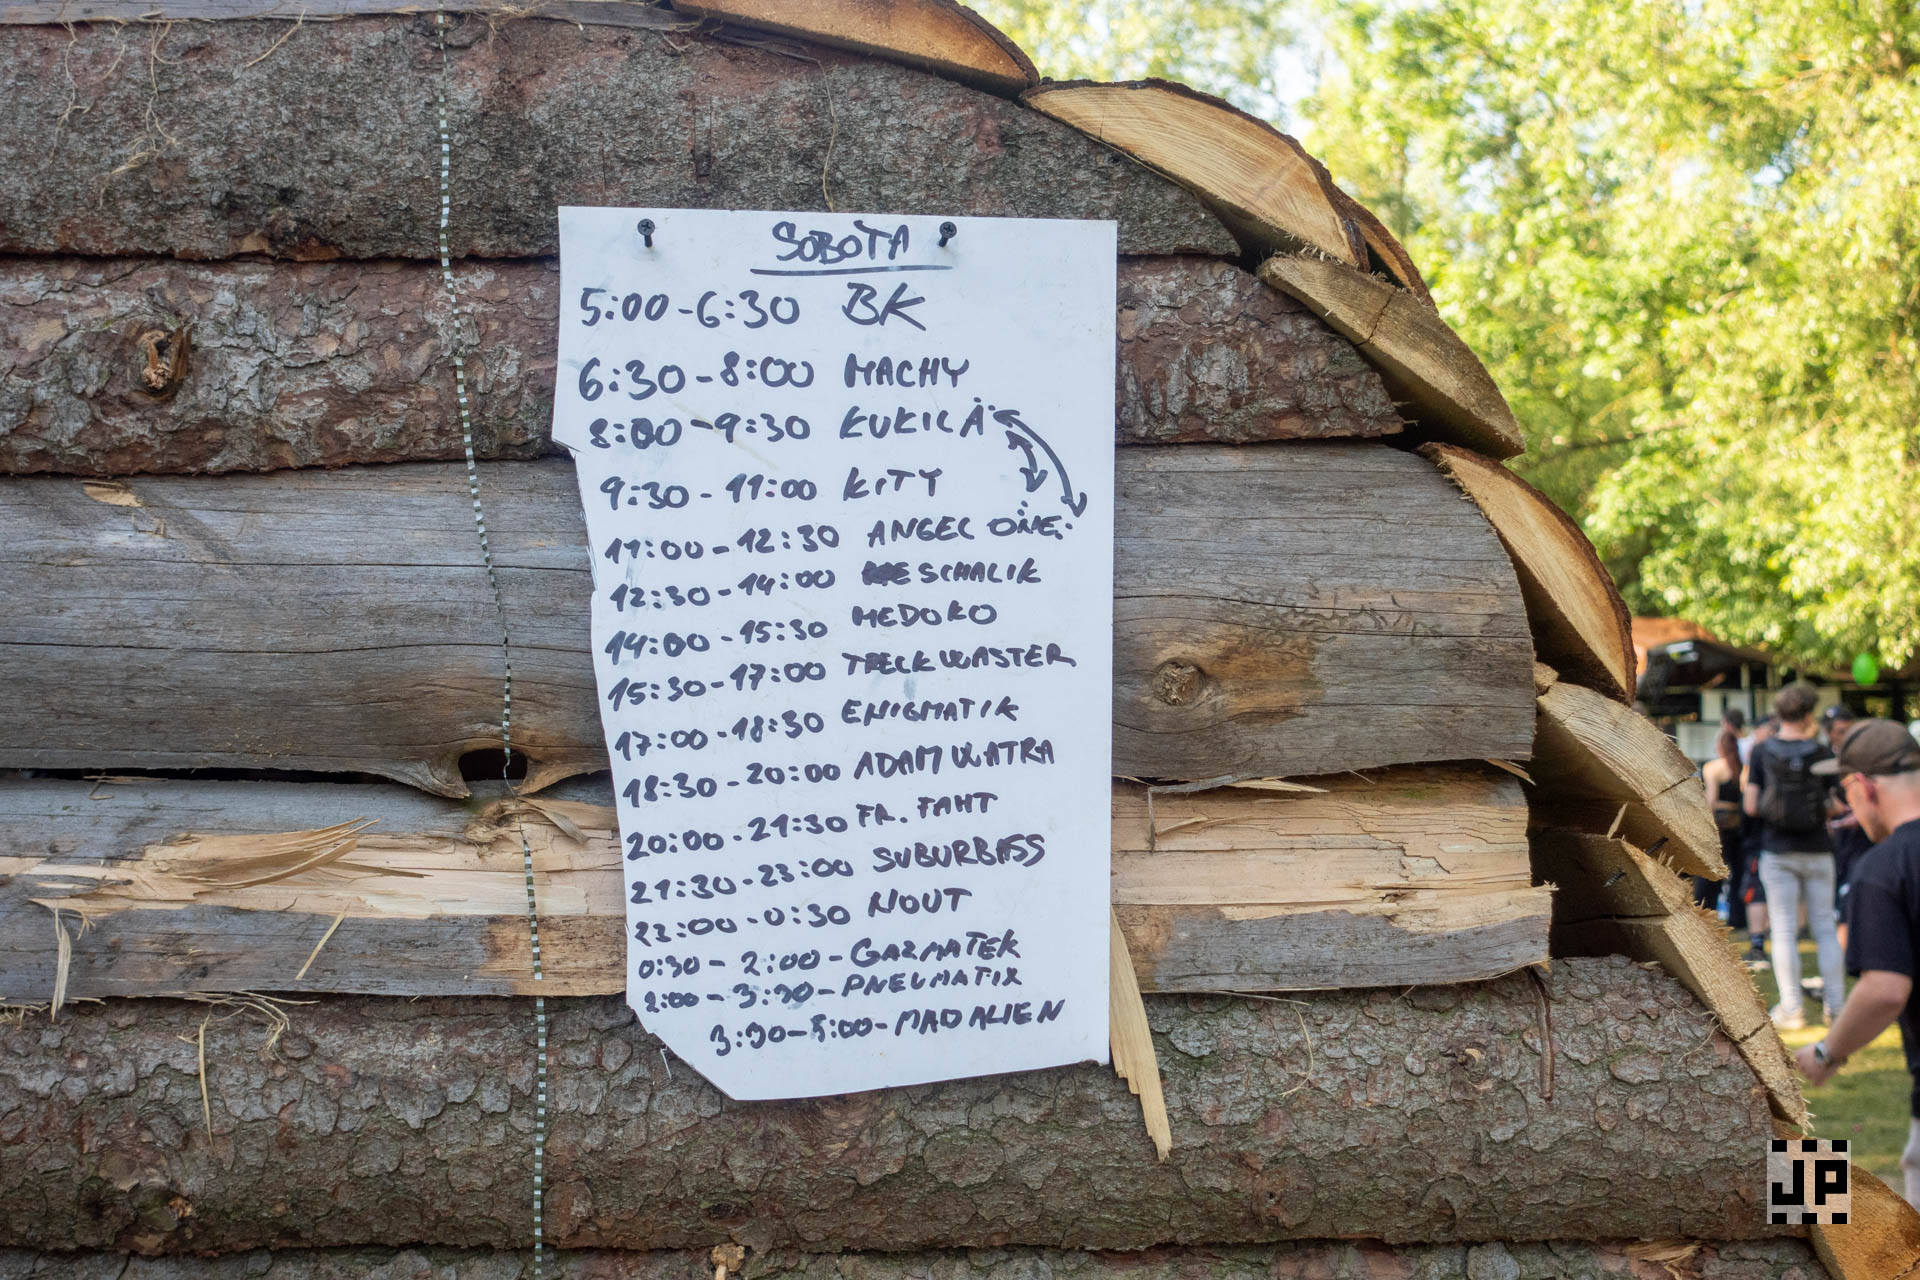 SOBOTA
5:00-6:30 BK
6:30-8:00 MACHY
8:00-9:30 KUKILA
9:30-11:00 KITY
11:00-12:30 ANGEL ONE
12:30-14:00 SCHALIK
14:00-15:30 MEDOKO
15:30-17:00 TECKWASTER
17:00-18:30 ENIGMATIK
18:30-20:00 ADAM WATRA
20:00-21:30 FR. FAHT
21:30-23:00 SUBURBASS
23:00-0:30 NOUT
0:30-2:00-GAZMATEK
2:00-3:30-PNEUMATIX
3:30-5:00-MAD ALIEN
JP